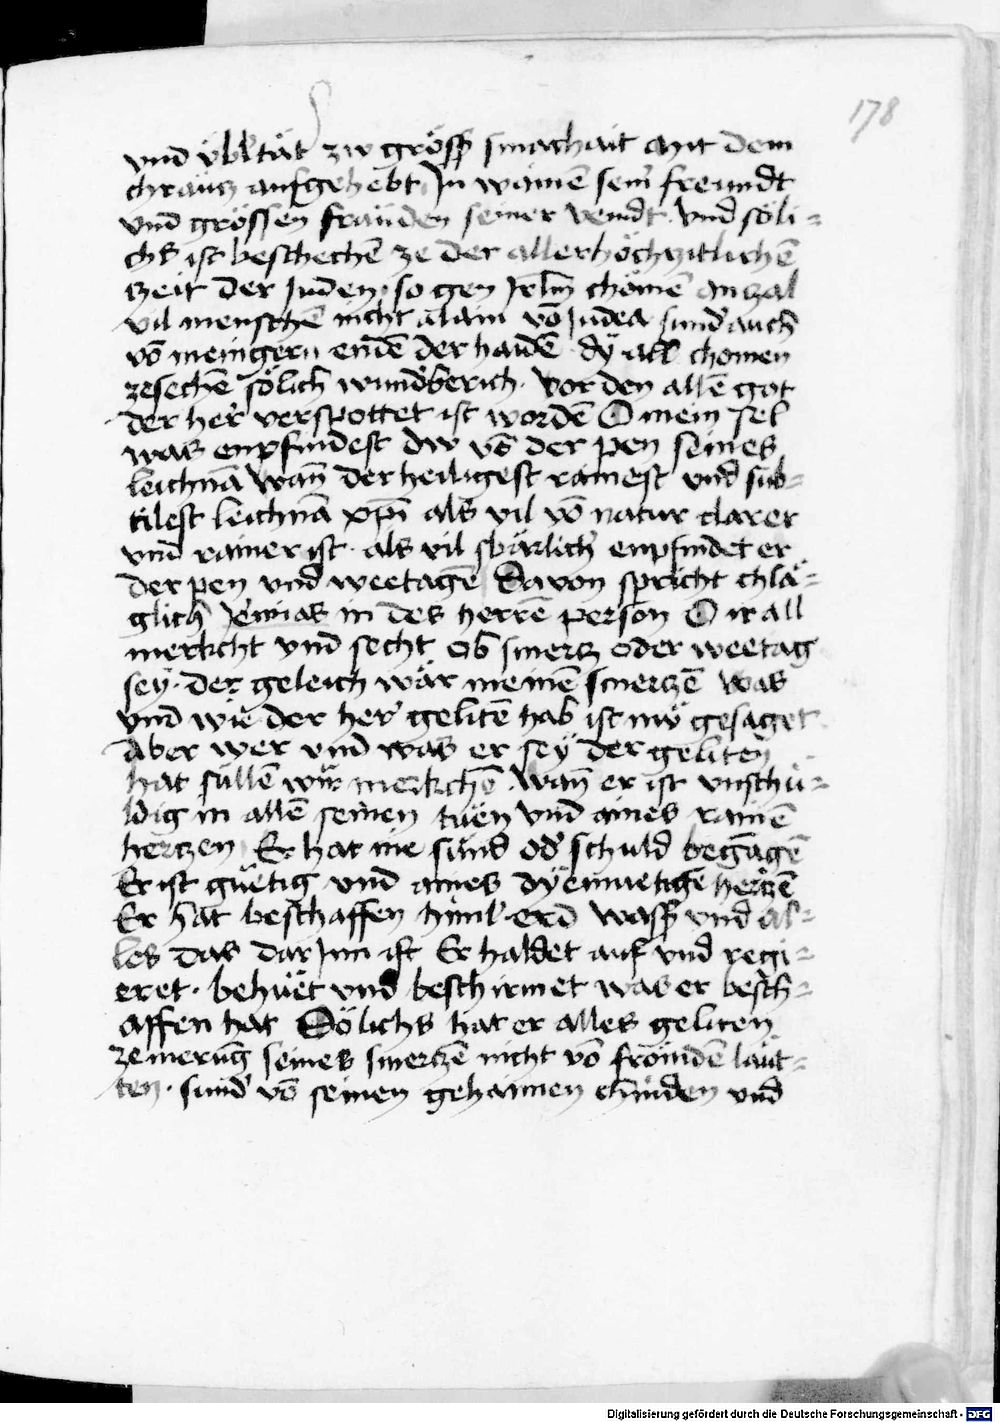 178
vnd vbltät zw grösß smachait mit dem
chräutz aufgehebt Jn wainē seinr freundt
vnd grössen fräuden seiner veindt · vnd söli-
chs ist beschechē ze der allerhöchzitlichē
zeit der Juden · so gen Jrlm̄ chömē an zal
vil menschē nicht alain vō Judea sund' auch
vō meingern endē der haidē · dÿ all chomen
zesechē sölich wund'berich · Vor den allē got
der her' verspottet ist wordē O mein sel
was enpfindest dw vō der pen seines
leichnā wan̄ der heiligest rainest vnd sub-
tilest leichnā xp̄i als vil vō natur clarer
vnd rainer ist · als vil swärlich' enpfindet er
der pen vnd weetagē Davon spricht chlä-
glich Jemias in des herrē person O ir all
merkcht vnd secht ob smertz oder weetag
seÿ · der geleich wär meinē smertzē was
vnd wie der her' gelitē hab ist nw gesaget
Aber wer vnd was er seÿ der geliten
hat süllē wir merkchē · wan̄ er ist vnschu-
ldig in allē seinen tüen vnd aines rainē
hertzen Er hat nie sünd od' schuld begāgē
Er ist güetig vnd aines dÿemuetigē hertzē
Er hat beschaffen himl · erd wasß vnd al-
les das dar Jnn ist Er haldet auf vnd regi-
eret · behüet vnd beschirmet was er besch-
affen hat Sölichs hat er alles geliten
ze merūg seines smertzē nicht vō fröindē läut-
ten · sund' vō seinen gehaimen chindē vnd
Digitalisierung gefördert durch die Deutsche Forschungsgemeinschaft - DFG